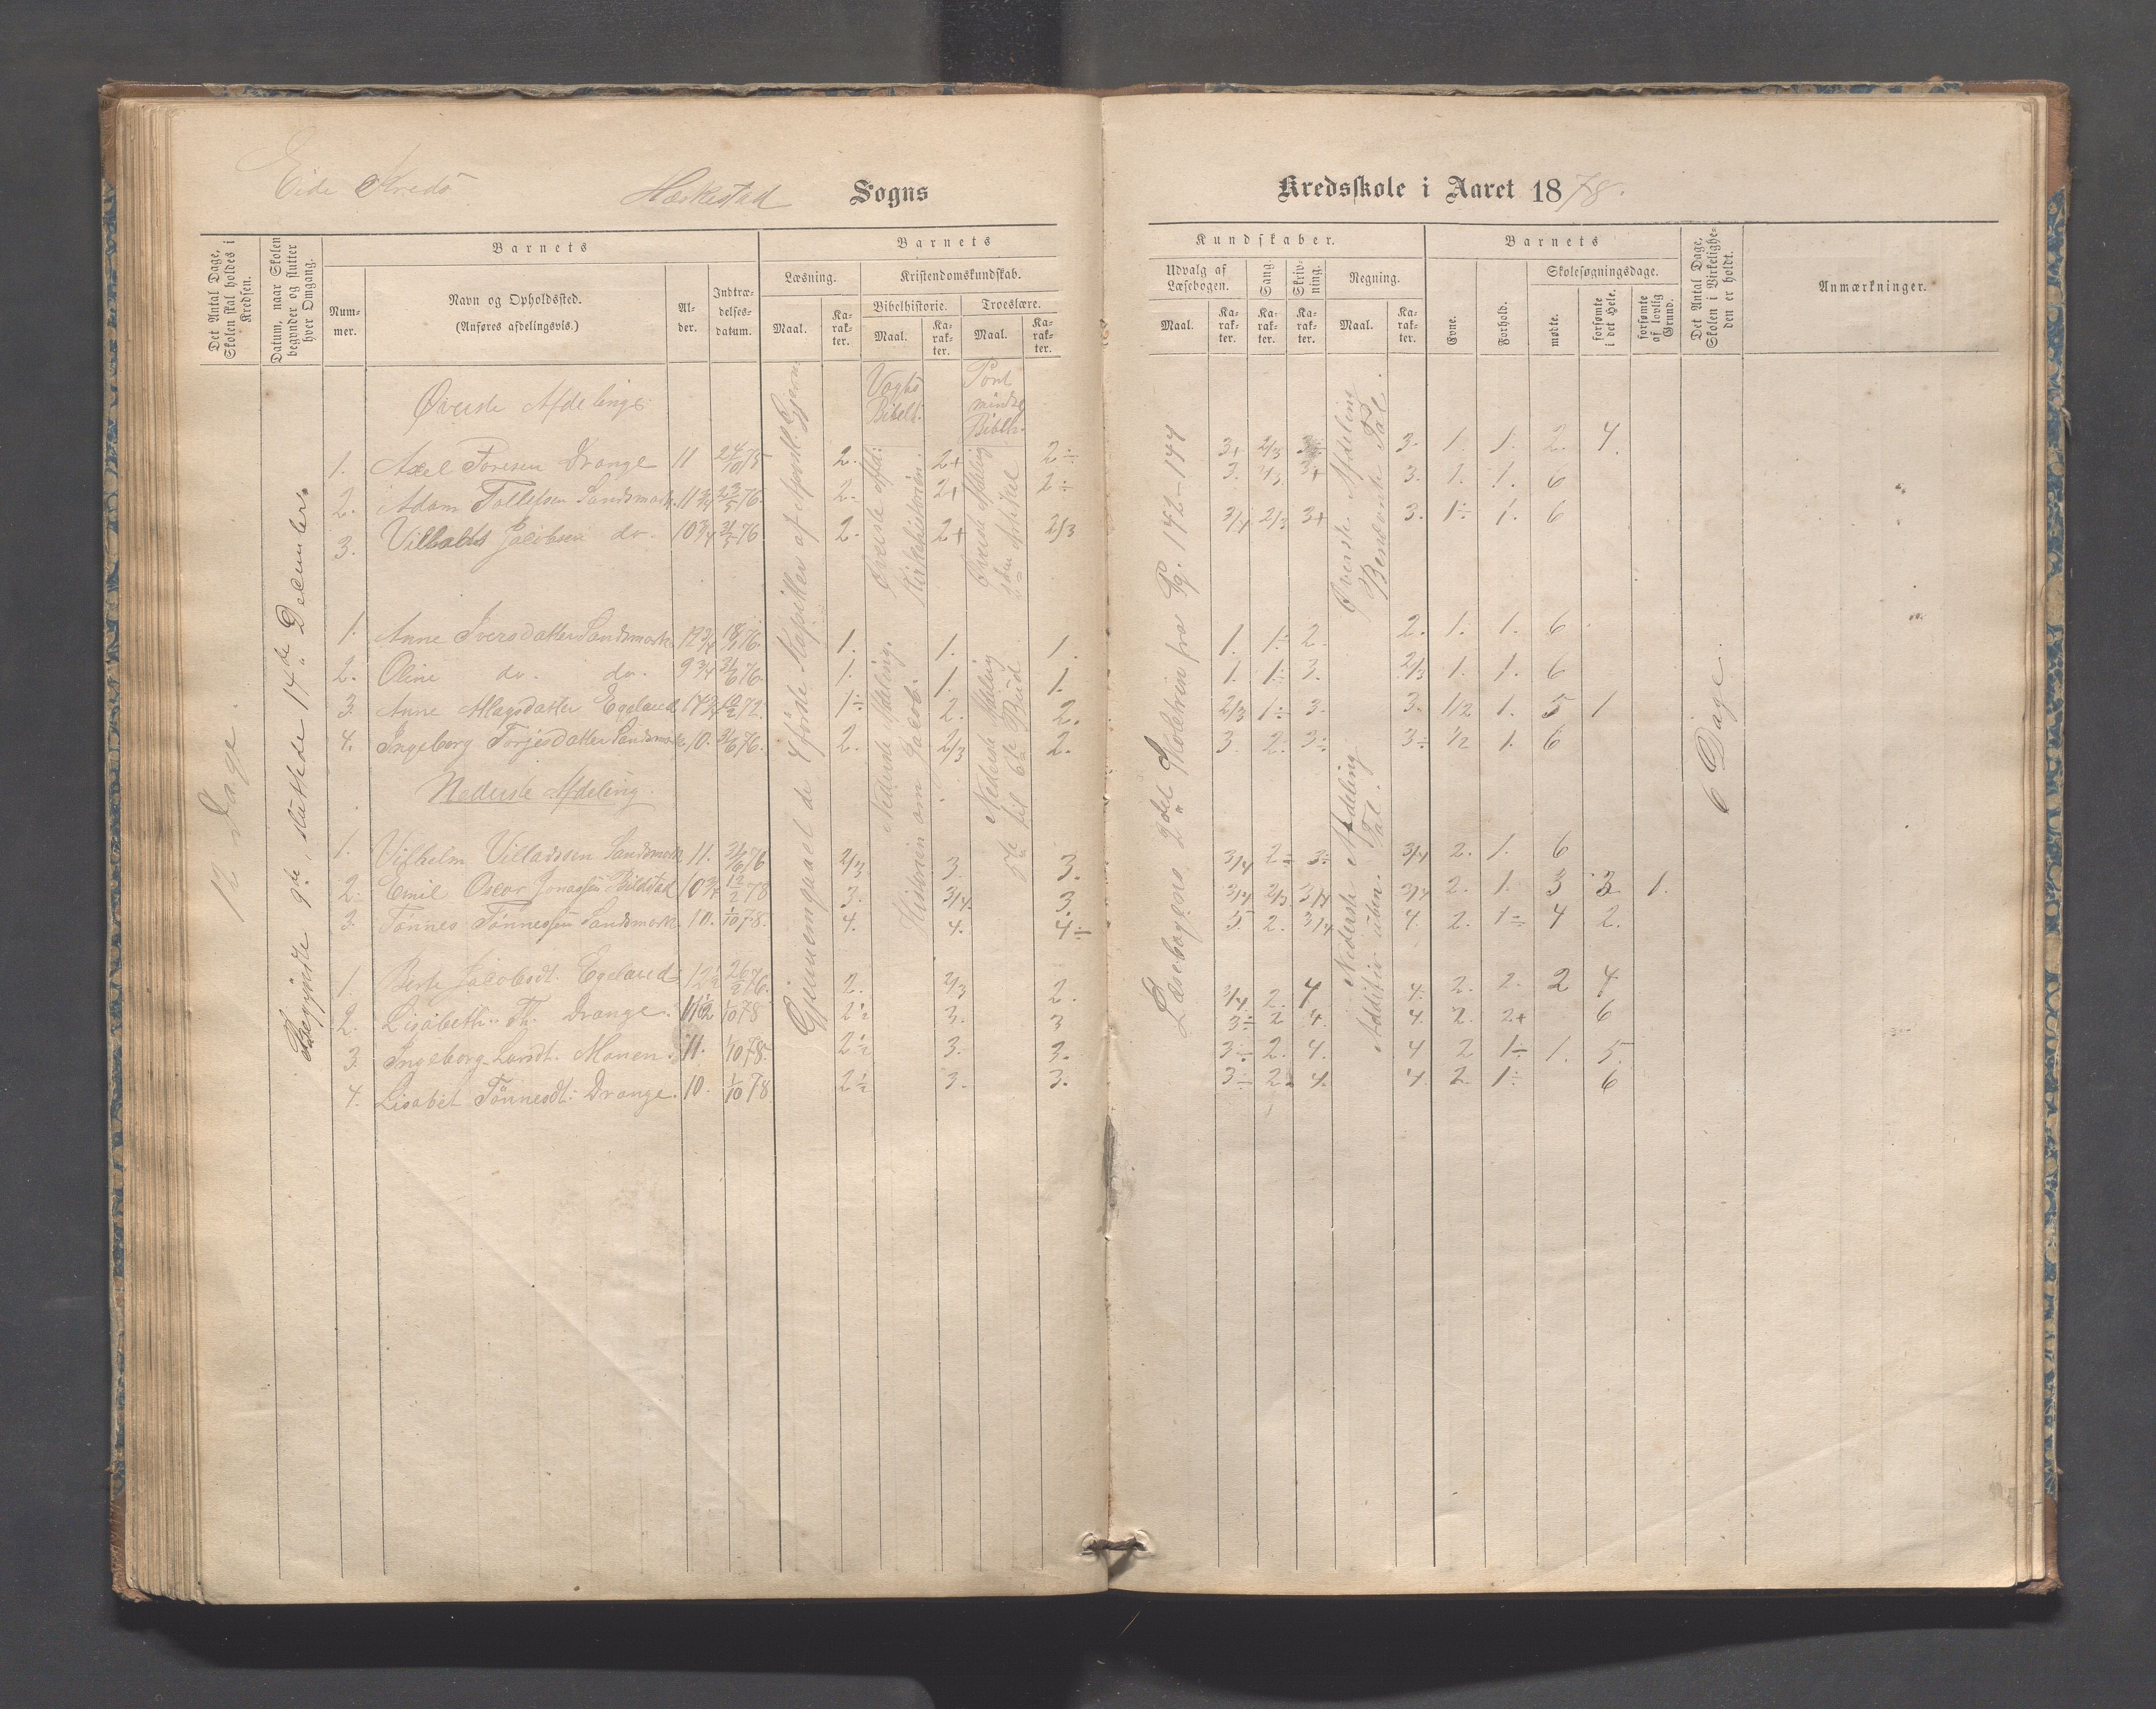 Eide Kreds
Heskestad Sogns Kredsskole i Aaret 1878.
Det Antal Dage, Skolen skal holdes i Kredsen.
Datum, naar Skolen begynder og slutter hver Omgang.
Barnets
Nummer.
Navn og Opholdssted.
(Anføres afdelingsvis.)
Alder.
Indtrædelsesdatum.
Barnets
Læsning.
Maal.
Karakter.
Kristendomskundskab.
Bibelhistorie.
Maal.
Karakter.
Troeslære.
Maal.
Karakter.
Kundskaber.
Udvalg af Læsebogen.
Maal.
Karakter.
Sang.
Karakter.
Skrivning.
Karakter.
Regning.
Maal.
Karakter.
Barnets
Evne.
Forhold.
Skolesøgningsdage.
mødte.
forsømte i det Hele.
forsømte af lovlig Grund.
Det Antal Dage, Skolen i Virkeligheden er holdt.
Anmærkninger.
12 Dage.
Begyndte 9de, sluttede 14de December.
Vogts Bibelh.
Pont mindre Biblh.
Øverste Afd: Kirkehistorien.
Øverste Afdeling 2den Artikel
Nederste Afdeling. Historien om Jacob.
Nederste Afdeling 5te til 6te Bud
Læsebogens 2det Skoletrin fra Pg. 142-144
Øverste Afdeling Benævnte Tal.
Nederste Afdeling Addition uben. Tal.
6 Dage.
Øverste Afdeling.
1. Axel Toresen Drange 11 24/10 75 2. 2+ 2÷ 3+ 2/3 3÷ 3. 1. 1. 2. 4.
2. Adam Tollefsen Sandsmark. 11 3/4 23/5 76. 2. 2+ 2÷ 3. 2/3 3+ 3. 1. 1. 6
3. Jacobsen do. 10 3/4 76 2. 2+ 2/3 3/4 2/3 3+ 3. 1÷ 1. 6
1. Anne Iversdatter Sandsmark 12 3/4 76. 1. 1. 1. 1. 1÷ 2. 2. 1. 1. 6
2. Oline do. do. 9 3/4 31/6 76. 1. 1. 1. 1. 1÷ 3. 2/3 1. 1. 6
3. Anne Atlagsdatter Egeland 72. 1÷ 2. 2. 2/3 1÷ 3. 3. 1/2 1. 5 1
4. Ingeborg Torjesdatter Sandsmark. 10. 31/6 76. 2. 2/3 2. 3. 2. 3÷ 3÷ 1/2 1. 6
Nederste Afdeling.
1. Vilhelm Villadssen Sandsmark 11. 31/6 76 2/3 3. 3. 3/4 2÷ 3÷ 3/4 2. 1. 6
2. Emil Oscar Jonassen Bilstad 10 3/4 12/2 78 3. 3/4. 3. 3/4 2/3 3/4 3/4 2. 1. 3 3 1.
3. Tønnes Tønnessen Sandsmark 10. 1/10 78. 4. 4. 4÷ 5 2. 3/4 4. 2. 1÷ 4 2.
1. Berte Jacobsdt. Egeland 12 1/2 26/2 76. 2. 2/3 2. 3/4 2. 4 4. 2. 2. 2 4
2. Lisabeth Th. Drange. 1/10 78 2 1/2 3. 3 3÷ 2 4. 4. 2. 2+ 6
3. Ingeborg Larsdt. Monen. 11. 1/10 78. 2 1/2 3. 3. 3÷ 2. 4. 4 2 1÷ 1. 5.
4. Lisabet Tønnesdt. Drange. 10. 1/10 78 2 1/2 3. 3. 3÷ 2. 4. 4. 2. 1÷ 6